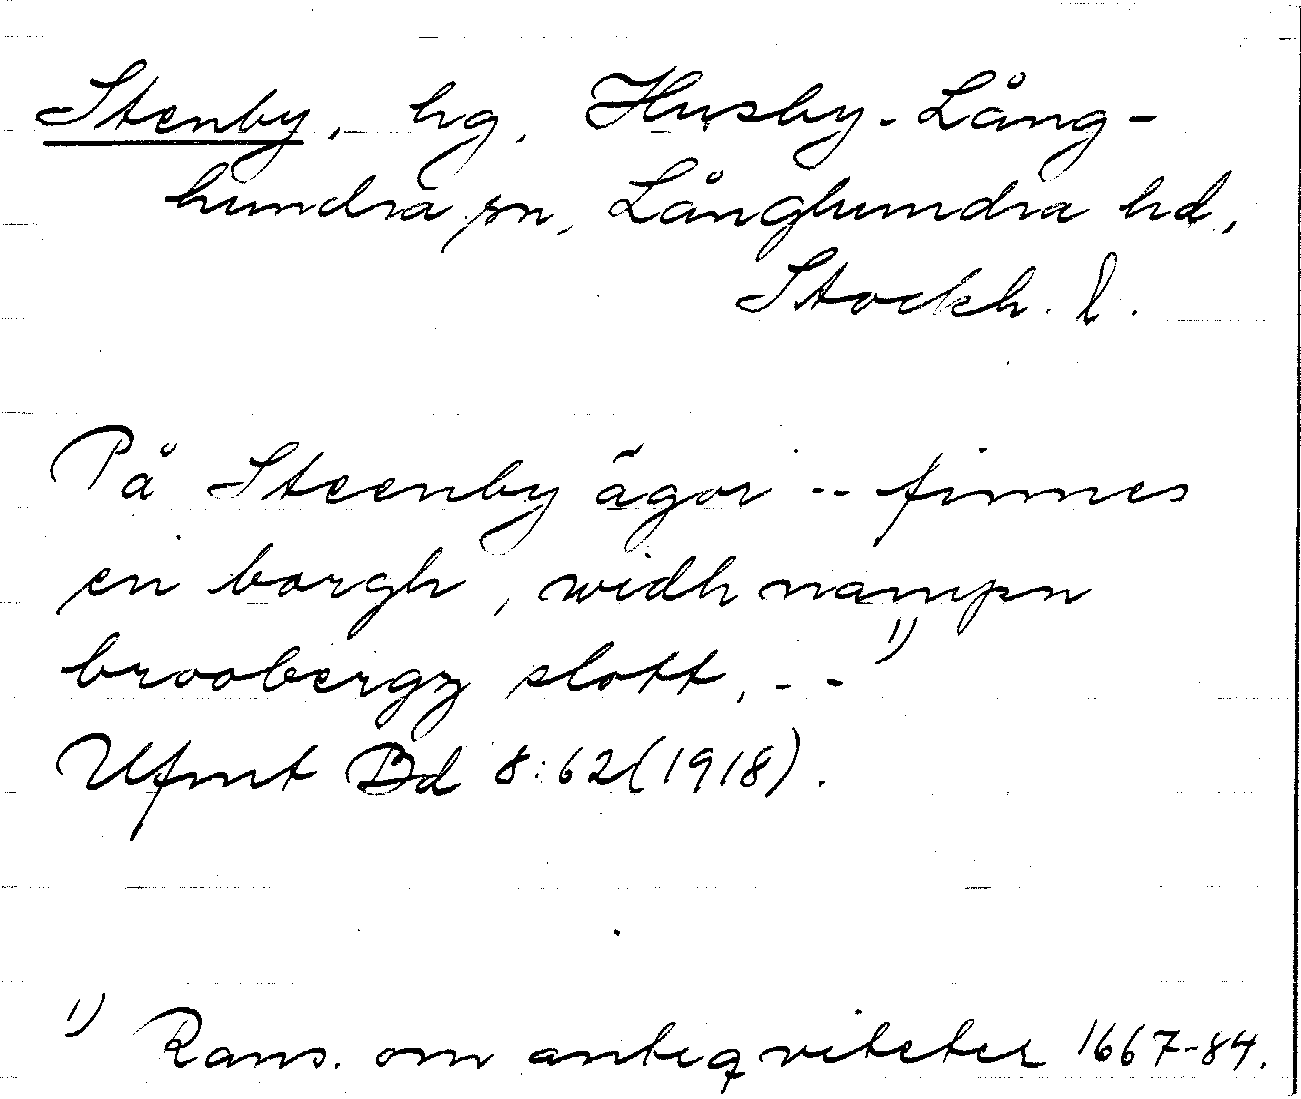 Stenby, hg, Husby-Lång-
hundra sn, Långhundra hd,
Stockh. l.
På Steenby ägor -- finnes
en borgh, widh nampn
broobergz slott, -- 1)
Ufmt Bd 8:62 (1918).
1) Rans. om antiqviteter 1667-84.